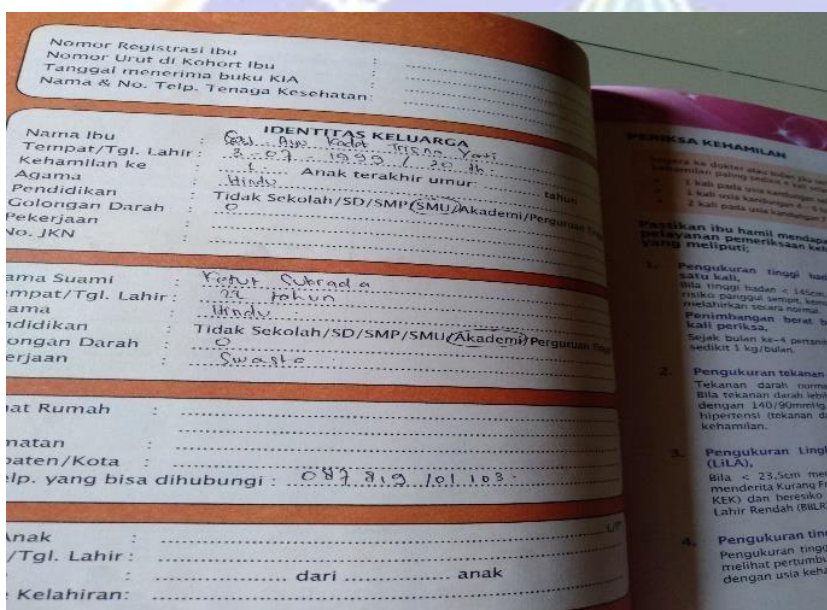 Nomor Registrasi Ibu :
Nomor Urut di Kohort Ibu :
Tanggal menerima buku KIA :
Nama & No. Telp. Tenaga Kesehatan:
IDENTITAS KELUARGA
Nama Ibu : Ayu Kadek Trisna Yati
Tempat/Tgl. Lahir : 3-07-1999 / 20 th
Kehamilan ke : 1 Anak terakhir umur: tahun
Agama : Hindu
Pendidikan : Tidak Sekolah/SD/SMP/SMU/Akademi/Perguruan
Golongan Darah : O
Pekerjaan :
No. JKN :
ama Suami : Ketut Subrada
empat/Tgl. Lahir : 22 tahun
ama : Hindu
ndidikan : Tidak Sekolah/SD/SMP/SMU/Akademi/Perguruan
ongan Darah : O
erjaan : Swasta
at Rumah :
matan :
paten/Kota :
elp. yang bisa dihubungi : 087 819 101 103
Anak : L/P
/Tgl. Lahir :
: dari anak
Kelahiran:
PERIKSA KEHAMILAN
ke dokter atau bidan jika
1 kali pada usia kandungan
1 kali pada usia kandungan
2 kali pada usia kandungan
Pastikan ibu hamil mendapa
pelayanan pemeriksaan keh
yang meliputi;
1. Pengukuran tinggi bad
satu kali,
Bila tinggi badan < 145cm,
risiko panggul sempit, kem
melahirkan secara normal.
Penimbangan berat b
kali periksa,
Sejak bulan ke-4 pertam
sedikit 1 kg/bulan.
2. Pengukuran tekanan
Tekanan darah norma
Bila tekanan darah lebih
dengan 140/90mmHg,
hipertensi (tekanan d
kehamilan.
3. Pengukuran Lingk
(LiLA),
Bila < 23,5cm men
menderita Kurang En
KEK) dan beresiko
Lahir Rendah (BBLR
4. Pengukuran tin
Pengukuran tingg
melihat pertumbu
dengan usia keha